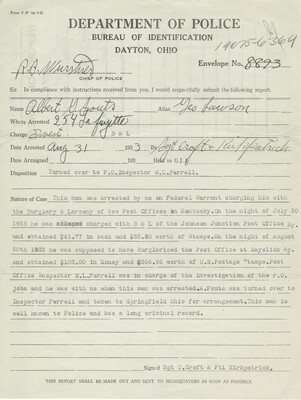 DEPARTMENT OF POLICE
BUREAU OF IDENTIFICATION
DAYTON, OHIO
19075-6364
Envelope No. 8893
CHIEF OF POLICE
Sir: In compliance with instructions received from you, I would respectfully submit the following report.
Name Albert Alias Geo Lawson
Where Arrested 254 Lafayette
Charge Invest B & L
Date Arrested Aug 31 193 3 By Sgt Croft & Kirkpatrick
Date Arraigned 193 Held to G.J.
Disposition Turned over to P.O. Inspector E.L.Ferrell.
Nature of Case This man was arrested by us on Federal Warrant charging him with
the Burglary & Larceny of two Post Offices in Kentucky.On the night of July 20
1933 he was charged with B & L of the Johnson Junction Post Office Ky.
and obtained $41.77 in cash and worth of Stamps.On the night of august
20th 1933 he was supposed to have Burglarized the Post Office at Mayslick Ky.
and obtained $103.00 in Money and worth of U.S.Postage Stamps.Post
Office Inspector E.L.Ferrell was in charge of the investigation of the P.O.
jobs and he was with us when this man was arrested.A.Fouts was turned over to
Inspector Ferrell and taken to Springfield Ohio for arrangement.This man is
well known to Police and has a long criminal record.
Signed Sgt C.Croft & Ptl Kirkpatrick.
THIS REPORT SHALL BE MADE OUT AND SENT TO HEADQUARTERS AS SOON AS POSSIBLE.